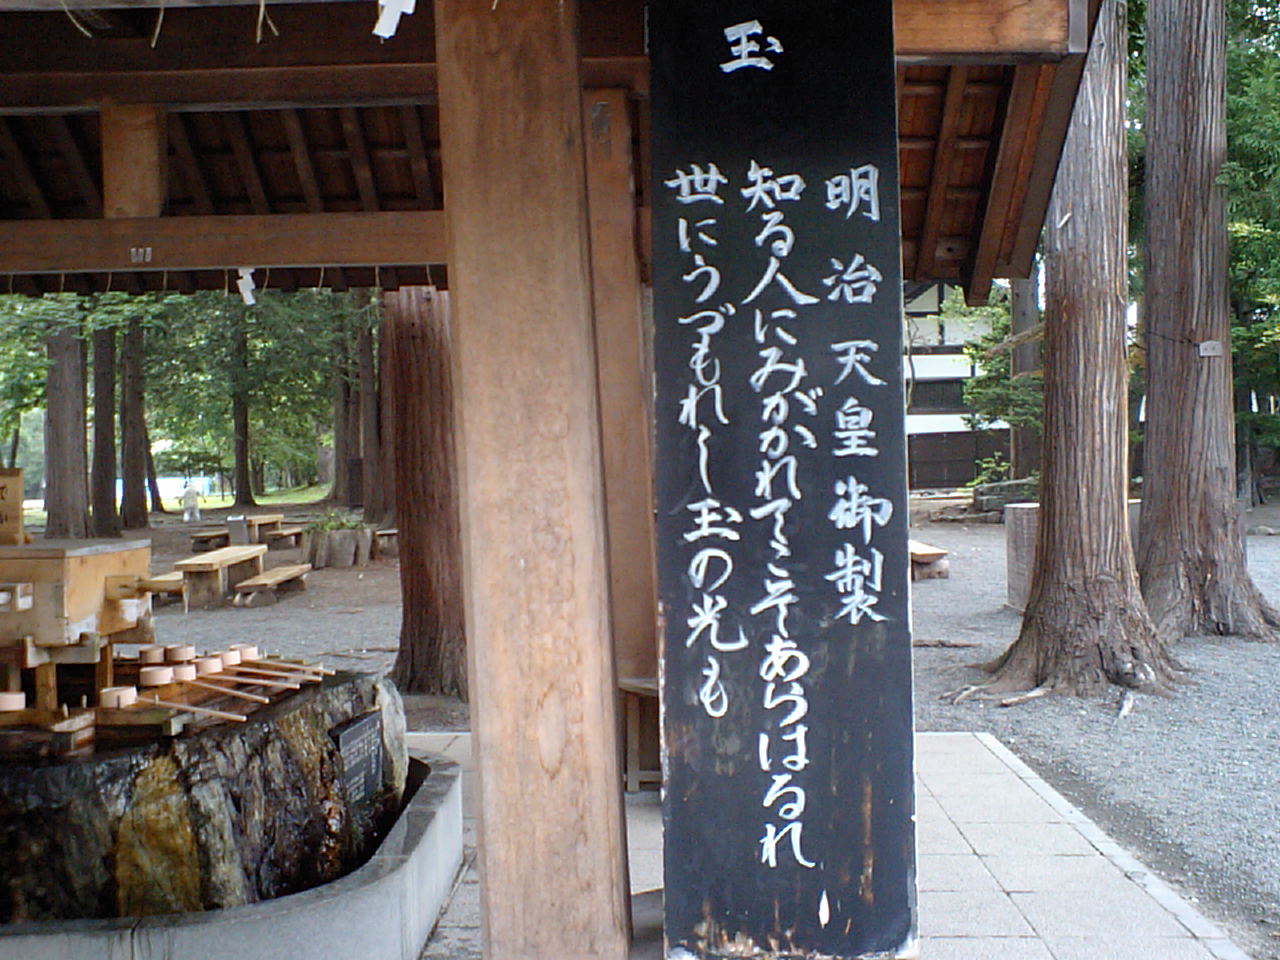 玉
明治天皇御製
知る人にみがかれてこそあらはるれ
世にうづもれし玉の光も